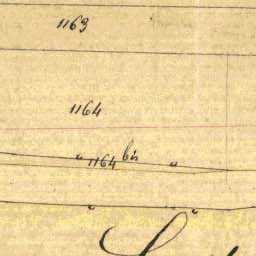 1163
1164
1164 bis